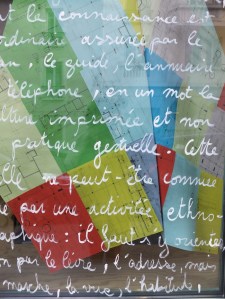 la connaissance est
ordinaire assurée par le
plan, le guide, l'annuaire
téléphone, en un mot la
culture imprimée et non
pratique gestuelle. Cette
elle ne peut-être connue
que par une activité ethno-
graphique : il faut s'y orienter,
non par le livre, l'adresse, mais
marche, la vue, l'habitude,